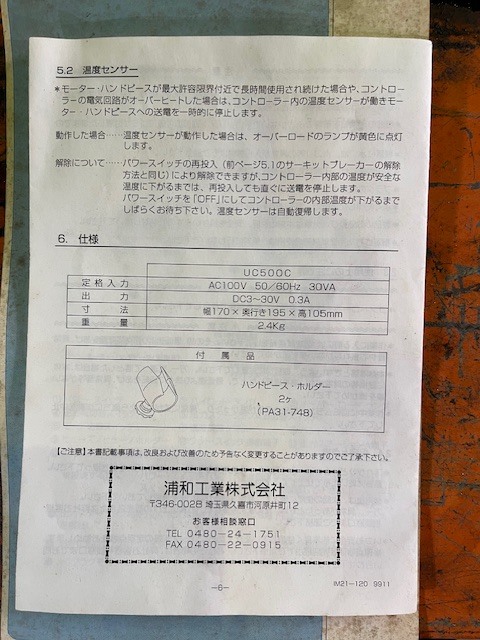 5.2 温度センサー
＊モーター・ハンドピースが最大許容限界付近で長時間使用され続けた場合や、コントロー
ラーの電気回路がオーバーヒートした場合は、コントローラー内の温度センサーが働きモー
ター・ハンドピースへの送電を一時的に停止します。
動作した場合……温度センサーが動作した場合は、オーバーロードのランプが黄色に点灯
します。
解除について……パワースイッチの再投入（前ページ5.1のサーキットブレーカーの解除
方法と同じ）により解除できますが、コントローラー内部の温度が安全な
温度に下がるまでは、再投入しても直ぐに送電を停止します。
パワースイッチを「OFF」にしてコントローラーの内部温度が下がるまで
しばらくお待ち下さい。温度センサーは自動復帰します。
6. 仕様
UC500C
定格入力 AC100V 50／60Hz 30VA
出力 DC3〜30V 0.3A
寸法 幅170×奥行き195×高105mm
重量 2.4Kg
付属品
ハンドピース・ホルダー
2ヶ
(PA31-748)
【ご注意】本書記載事項は、改良および改善のため予告なく変更することがありますのでご了承下さい。
浦和工業株式会社
〒346-0028 埼玉県久喜市河原井町12
お客様相談窓口
TEL 0480-24-1751
FAX 0480-22-0915
－6－
IM21-120 9911